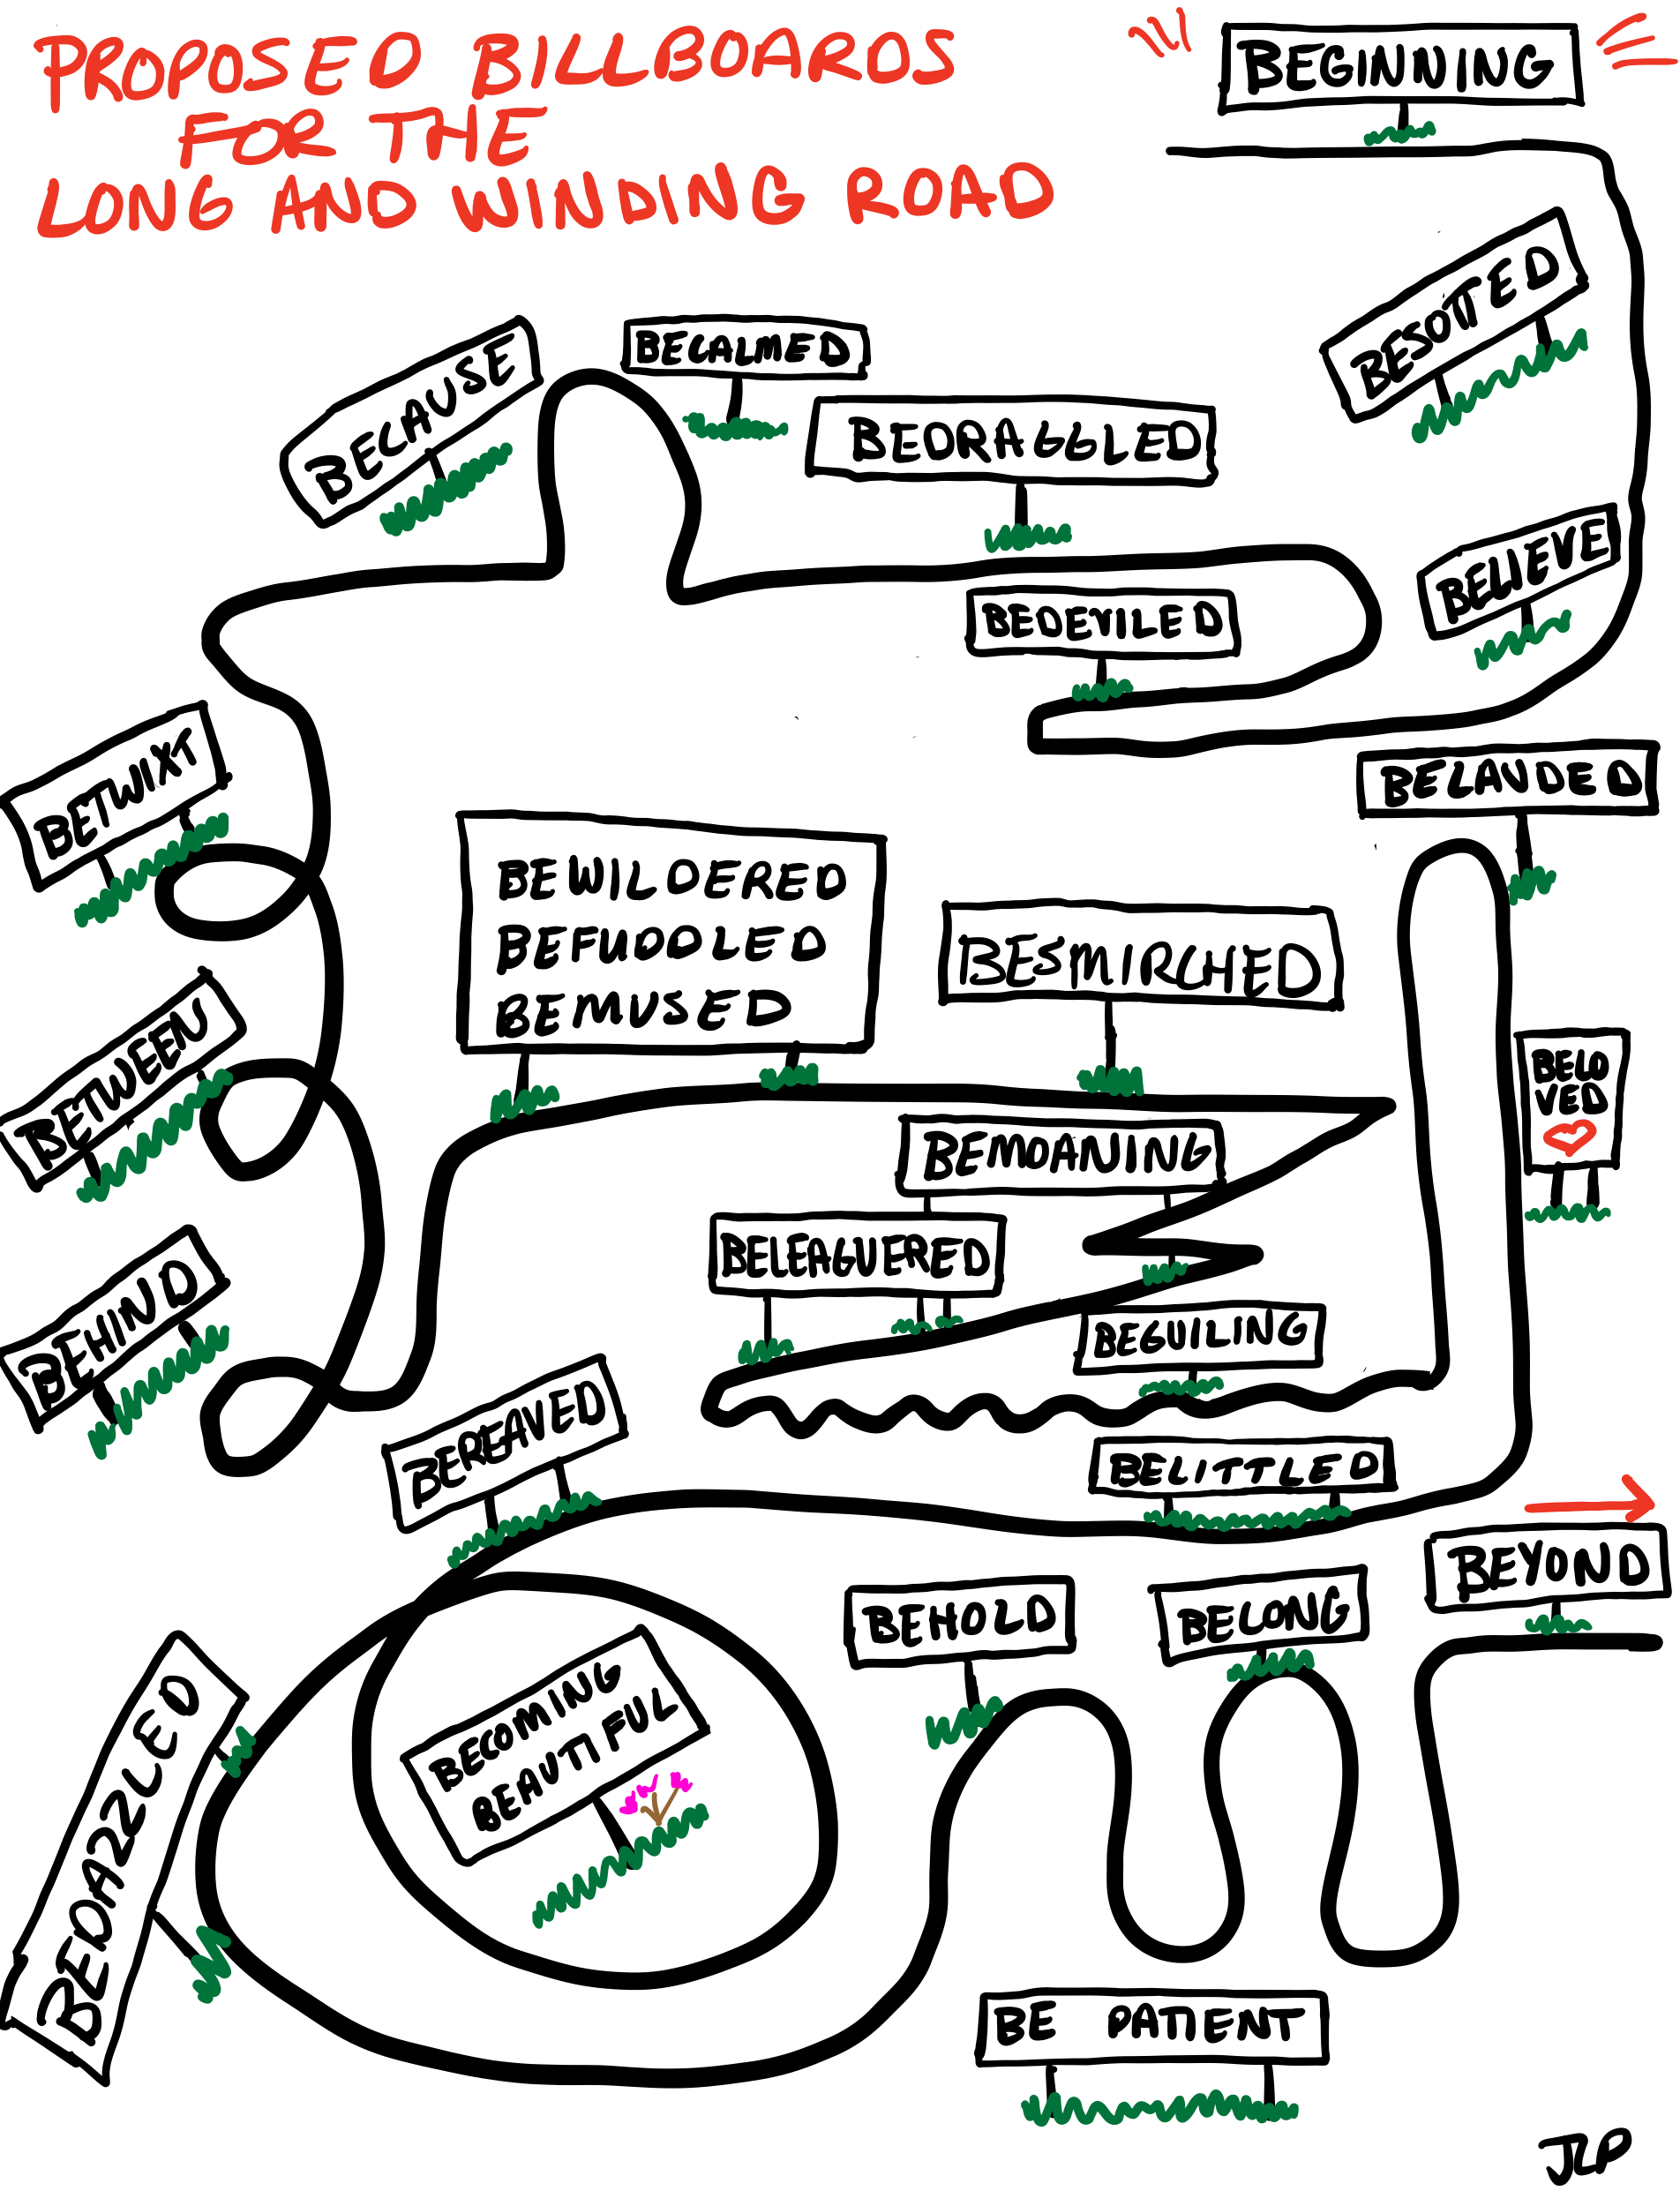 PROPOSED BILLBOARDS
FOR THE
LONG AND WINDING ROAD
BEGINNING
BESOTTED
BELIEVE
BEDEVILED
BEDRAGGLED
BECALMED
BECAUSE
BETWIXT
BETWEEN
BEHIND
BEWILDERED
BEFUDDLED
BEMUSED
BESMIRCHED
BEMOANING
BELEAGUERED
BEGUILING
BELAUDED
BELO
VED
BELITTLED
BEREAVED
BECOMING
BEAUTIFUL
BEDAZZLED
BEHOLD
BELONG
BE PATIENT
BEYOND
JLP